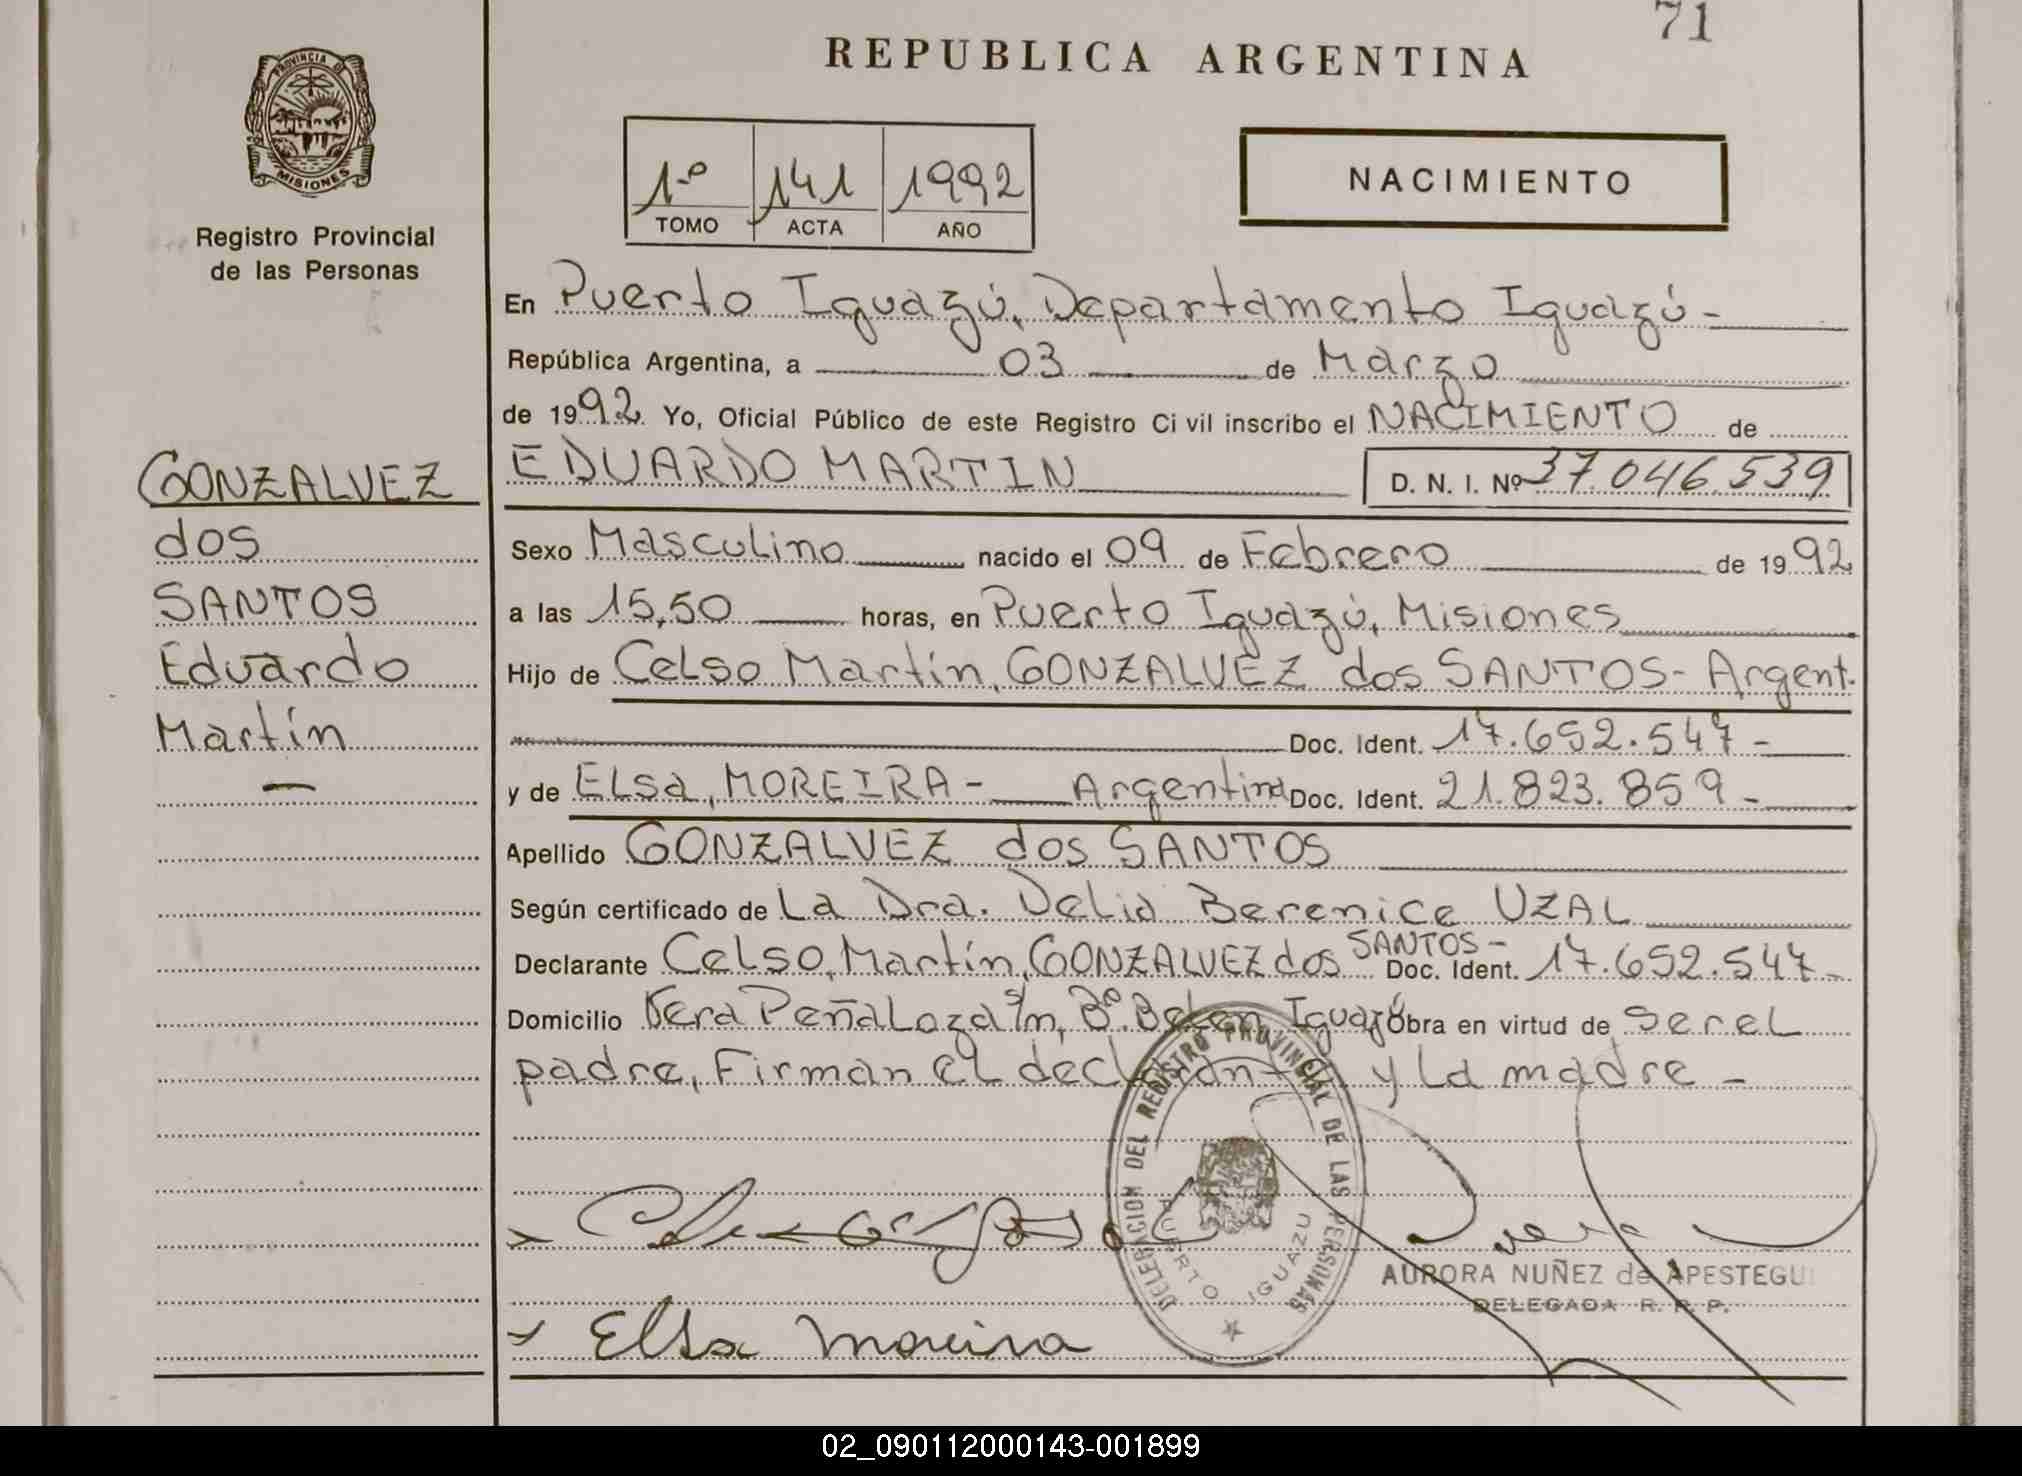 71
REPUBLICA ARGENTINA
PROVINCIA DE
MISIONES
Registro Provincial
de las Personas
1º 141 1992
TOMO ACTA AÑO
NACIMIENTO
En Puerto Iguazú, Departamento Iguazú-
República Argentina, a 03 de Marzo
de 1992. Yo, Oficial Público de este Registro Ci vil inscribo el NACIMIENTO de
EDUARDO MARTIN D. N. I. Nº 37.046.539
GONZALVEZ
dos
SANTOS
Eduardo
Martín
Sexo Masculino nacido el 09 de Febrero de 1992
a las 15,50 horas, en Puerto Iguazú, Misiones
Hijo de Celso Martín, GONZALVEZ dos SANTOS- Argent.
Doc. Ident. 17.652.547-
y de ELSa, MOREIRA- Argentina Doc. Ident. 21.823.859-
Apellido GONZALVEZ dos SANTOS
Según certificado de La Dra. Delia Berenice UZAL
Declarante Celso, Martín, GONZALVEZ dos SANTOS- Doc. Ident. 17.652.547-
Domicilio Vera Peñaloza s/n, Bº. Belen Iguazú Obra en virtud de ser el
padre, Firman el declarante y La madre-
DELEGACION DEL REGISTRO PROVINCIAL DE LAS PERSONAS
PUERTO IGUAZU
AURORA NUÑEZ de APESTEGUI
DELEGADA R. P. P.
Elsa Moreira
02_090112000143-001899